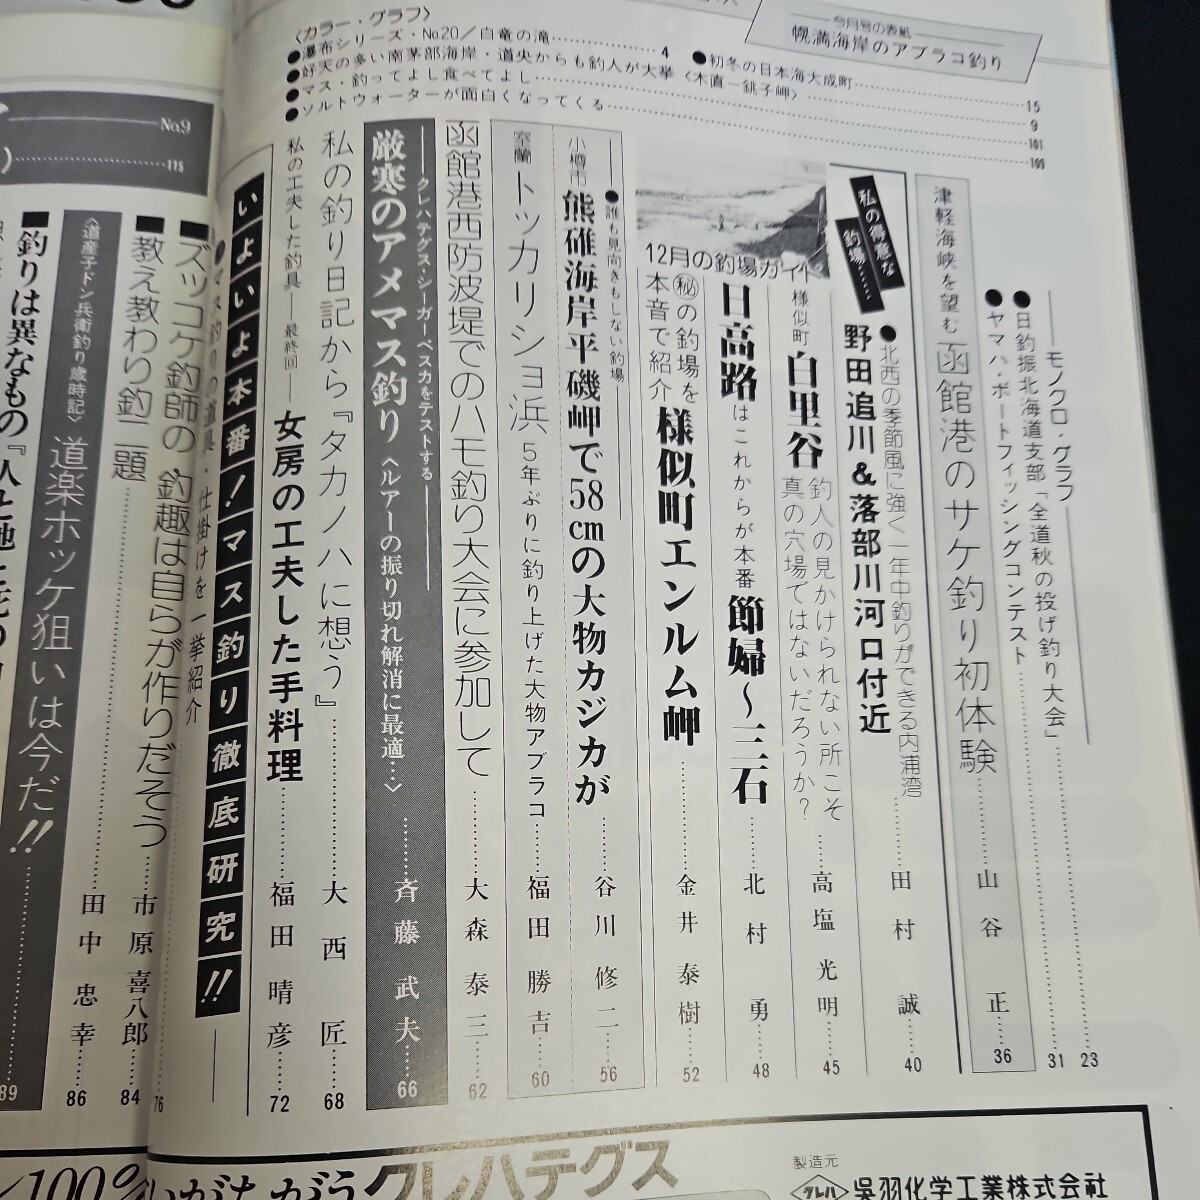 今月号の表紙
幌満海岸のアブラコ釣り
〈カラー・グラフ〉
●瀑布シリーズ・No20／白竜の滝………4
●好天の多い南茅部海岸・道央からも釣人が大挙〈木直〜銚子岬〉………9
●マス・釣ってよし食べてよし………101
●ソルトウォーターが面白くなってくる………109
●初冬の日本海大成町………15
モノクロ・グラフ
●日釣振北海道支部「全道秋の投げ釣り大会」………23
●ヤマハ・ボートフィッシングコンテスト………31
津軽海峡を望む 函館港のサケ釣り初体験………山谷 正………36
私の得意な釣場……
●北西の季節風に強く一年中釣りができる内浦湾
野田追川＆落部川河口付近………田村 誠………40
12月の釣場ガイド
様似町 白里谷 釣人の見かけられない所こそ真の穴場ではないだろうか？………高塩光明………45
日高路はこれからが本番 節婦〜三石………北村 勇………48
㊙の釣場を本音で紹介 様似町エンルム岬………金井泰樹………52
●誰も見向きもしない釣場
小樽市 熊碓海岸平磯岬で58cmの大物カジカが………谷川修二………56
室蘭 トッカリショ浜 5年ぶりに釣り上げた大物アブラコ………福田勝吉………60
函館港西防波堤でのハモ釣り大会に参加して………大森泰三………62
クレハテグス・シーガーベスカをテストする
厳寒のアメマス釣り〈ルアーの振り切れ解消に最適…〉………斉藤武夫………66
私の釣り日記から『タカノハに想う』………大西 匠………68
私の工夫した釣具―最終回― 女房の工夫した手料理………福田晴彦………72
いよいよ本番！マス釣り徹底研究!!
●マス釣りの道具・仕掛けを一挙紹介………76
■ズッコケ釣師の 釣趣は自らが作りだそう………市原喜八郎………84
■教え教わり釣二題
〈道産子ドン兵衛釣り歳時記〉道楽ホッケ狙いは今だ!!………田中忠幸………86
■釣りは異なもの『人と
89
No.9
………115
クレハテグス
製造元
クレハ 呉羽化学工業株式会社